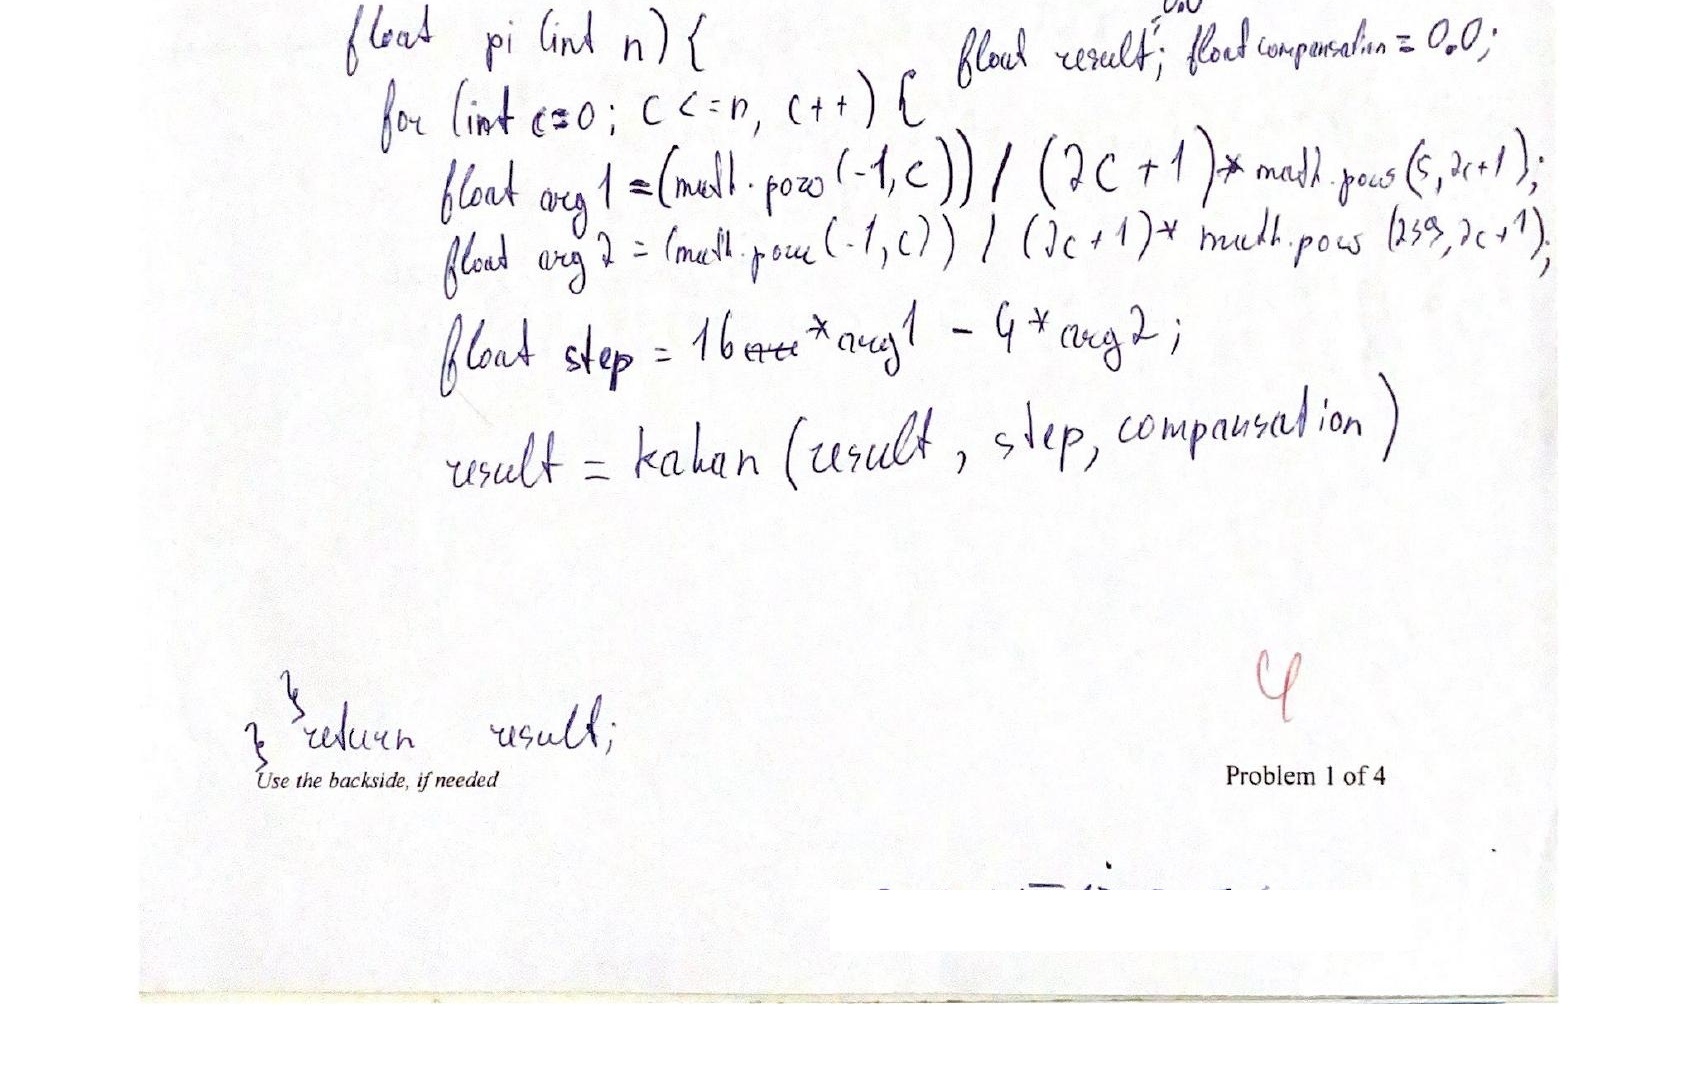 float pi (int n) { float result = 0.0; float compensation = 0.0;
for (int c=0; c <=n, c++) {
float arg1 = (math.pow(-1,c)) / (2c+1)* math.pow(5,2c+1);
float arg2 = (math.pow(-1,c)) / (2c+1)* math.pow(239,2c+1);
float step = 16*arg1 - 4*arg2;
result = kahan (result, step, compansation)
}
} return result;
4
Use the backside, if needed Problem 1 of 4